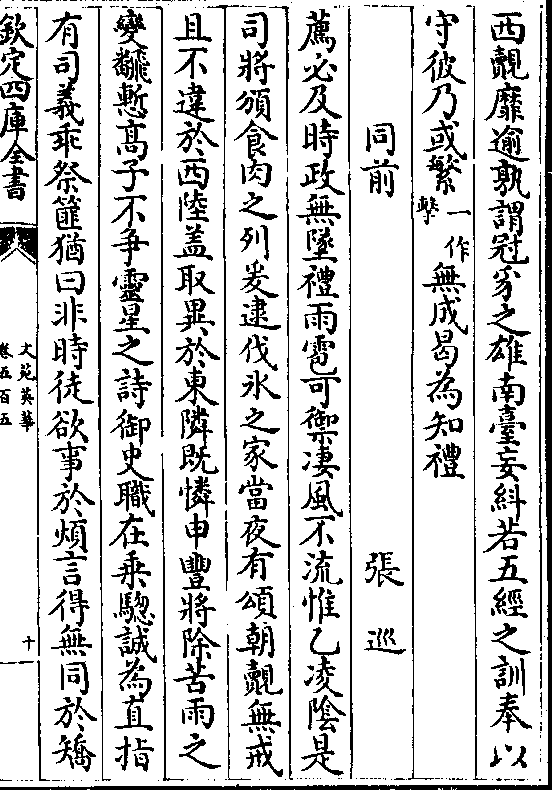 西覿靡逾孰謂冠豸之雄南臺妄糾若五經之訓奉以
守彼乃或繁一作擊無成曷為知禮
同前 張巡
薦必及時政無墜禮雨雹可禦淒風不流惟乙凌陰是
司將頒食肉之列爰逮伐氷之家當夜有頌朝覿無戒
且不違於西陸盖取異於東隣既憐申豐將除苦雨之
變翻慙髙子不争靈星之詩御史職在乗驄誠為直指
有司義乖祭韭猶曰非時徒欲事於煩言得無同於矯
欽定四庫全書
文苑英華
卷五百五
十